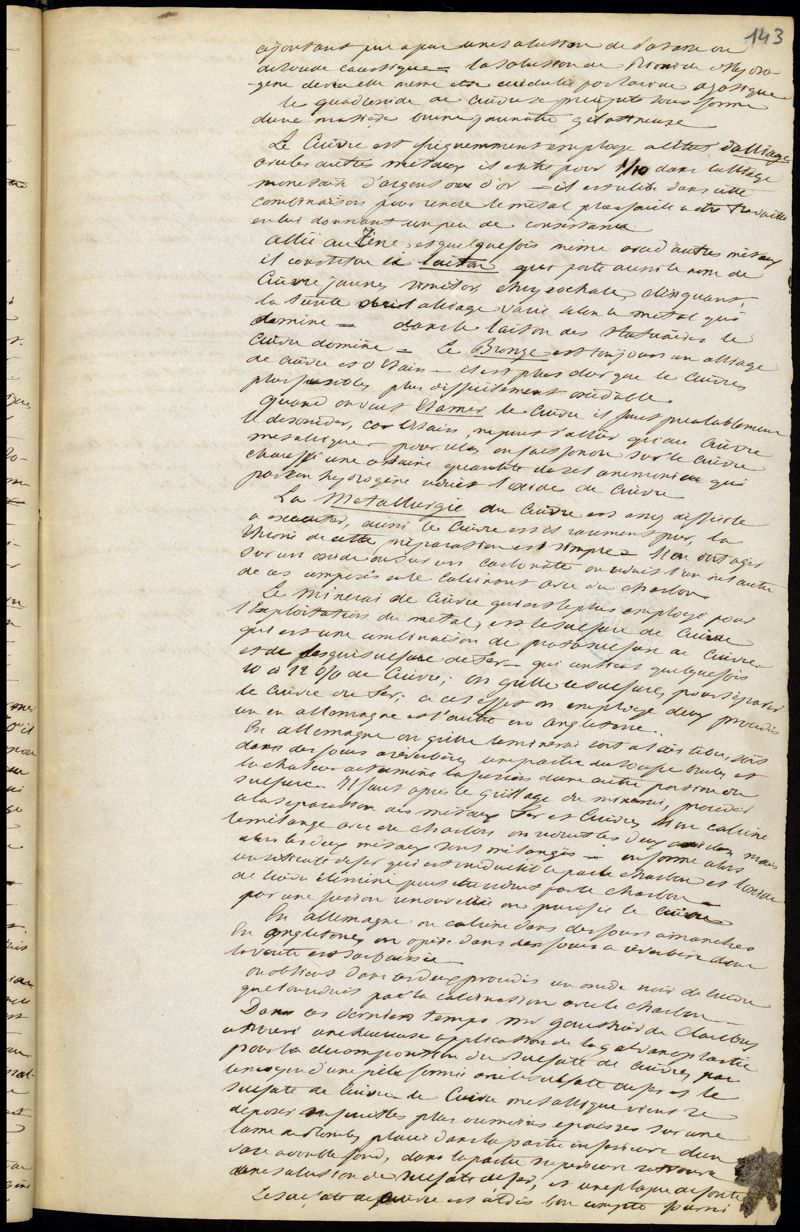 143
ajoutant peu a peu une solution de Potasse ou
de Soude caustique = la solution de bioxide d'hydro
gène devra elle même être acidulée par l'acide azotique
le quadroxide de cuivre se précipite sous forme
d'une matière brune jaunatre gelatineuse
Le Cuivre est fréquemment employé a l'état d'alliage
avec les autres metaux il entre pour 1/10 dans l'alliage
monetaire d'argent ou d'or = il est utile dans cette
combinaison pour rendre le métal plus facile a etre travaillé
en lui donnant un peu de consistance
allié au Zinc, et quelquefois même avec d'autres métaux
il constitue le laiton qui porte aussi le nom de
Cuivre jaune, similor, chrysochale, clinquant,
la teinte de cet alliage varie selon le métal qui
domine = dans le laiton des Statuaires le
Cuivre domine = Le Bronze est toujours un alliage
de cuivre et d'étain - il est plus dur que le cuivre,
plus fusible, plus difficilement oxidable
Quand on veut Etamer le cuivre il faut prealablement
le desoxider, car l'étain ne peut s'allier qu'au cuivre
metallique = pour cela on fait fondre sur le cuivre
chauffé une certaine quantité de sel ammoniac qui
par son hydrogène réduit l'oxide de cuivre
La Metallurgie du Cuivre est assez difficile
a executer, aussi le cuivre est il rarement pur, la
théorie de cette préparation est simple = si on doit agir
sur un oxide ou sur un carbonate on réduit l'un et l'autre
de ces composés en le calcinant avec du charbon
Le minerai de cuivre qui est le plus employé pour
l'Exploitation du métal, est le sulfure de Cuivre
qui est une combinaison de protosulfure de cuivre
et de sesquisulfure de fer - qui contient quelquefois
10 à 12 0/0 de Cuivre; on grille le sulfure, pour séparer
le Cuivre du fer; a cet effet on employe deux procédés
un en allemagne et l'autre en angleterre.
En allemagne on grille le minerai soit a l'air libre, soit
dans des fours a réverbère, une partie du soufre brule, et
la chaleur determine la fusion d'une autre portion du
sulfure - Il faut après le grillage du minerai, procéder
a la separation des métaux fer et Cuivre, on calcine
le mélange avec du charbon on réduit les deux oxides mais
alors les deux métaux sont mélangés = on forme alors
un silicate de fer qui est irreductible par le charbon et l'oxide
de cuivre éliminé puis est réduit par le charbon =
par une fusion renouvellée on purifie le cuivre
En allemagne on calcine dans des fours a manches
En angleterre on opère dans des fours a réverbère dont
la voute est surbaissée
on obtient dans ces deux procédés un oxide noir de cuivre
que l'on réduit par la calcination avec le charbon =
Dans ces derniers temps mr Gaultier de Claubry
a trouvé une heureuse application de la galvanoplastie
pour la décomposition du sulfate de cuivre, par
le moyen d'une pile formée avec le sulfate de fer et le
sulfate de Cuivre = le Cuivre metallique vient se
déposer en feuilles plus ou moins épaisses sur une
lame de Plomb, placée dans la partie inférieure d'un
vase a double fond, dans la partie supérieure se trouve
une solution de sulfate de fer, et une plaque de fonte
Le sulfate de cuivre est a très bon compte fourni